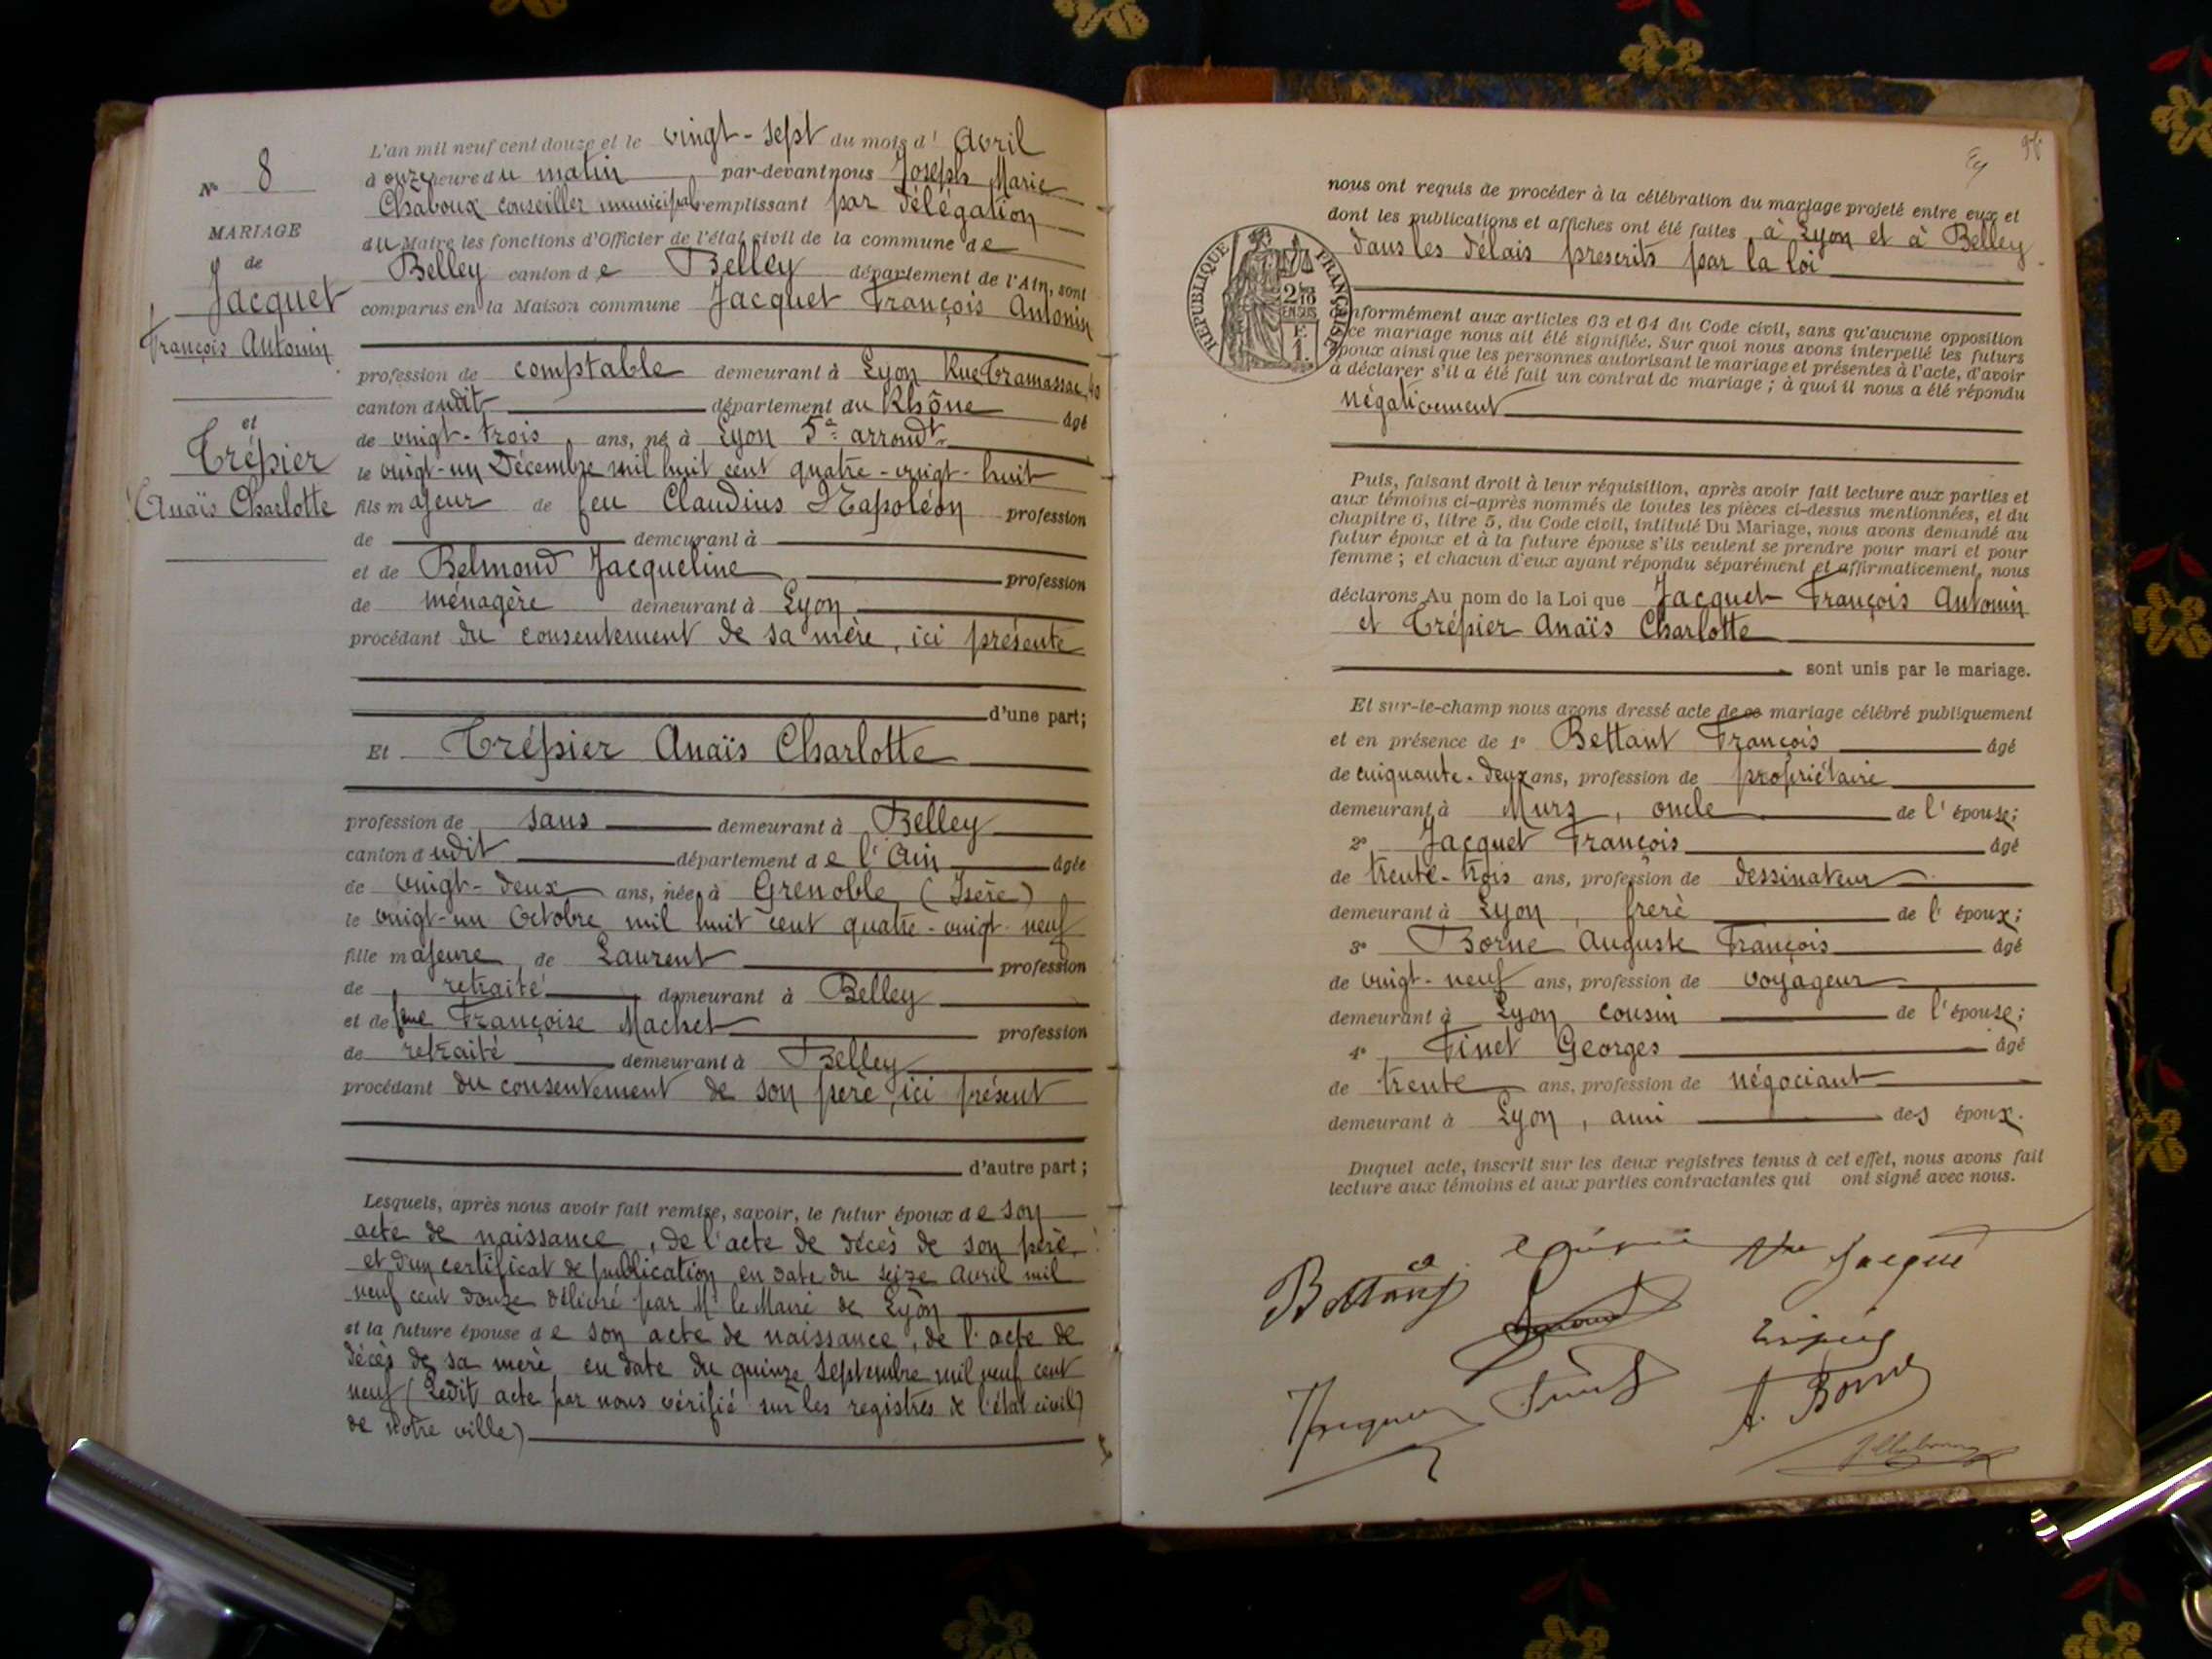 N° 8
MARIAGE
de
Jacquet
François Antonin
et
Trépier
Anaïs Charlotte
L'an mil neuf cent douze et le vingt-sept du mois d'Avril
à onze heure du matin par-devant nous Joseph Marie
Chaboux conseiller municipal remplissant par délégation
du Maire les fonctions d'Officier de l'état civil de la commune de
Belley canton de Belley département de l'Ain, sont
comparus en la Maison commune Jacquet François Antonin
profession de comptable demeurant à Lyon Rue Tramassac, 40
canton dudit département du Rhône âgé
de vingt-trois ans, né à Lyon 5e arrondt
le vingt-un Décembre mil huit cent quatre-vingt-huit
fils majeur de feu Claudius Napoléon profession
de demeurant à
et de Belmond Jacqueline profession
de ménagère demeurant à Lyon
procédant du consentement de sa mère, ici présente
d'une part;
Et Trépier Anaïs Charlotte
profession de sans demeurant à Belley
canton dudit département de l'Ain âgée
de vingt-deux ans, née à Grenoble (Isère)
le vingt-un Octobre mil huit cent quatre-vingt-neuf
fille majeure de Laurent profession
de retraité demeurant à Belley
et de feue Françoise Machet profession
de retraité demeurant à Belley
procédant du consentement de son père, ici présent
d'autre part;
Lesquels, après nous avoir fait remise, savoir, le futur époux de son
acte de naissance, de l'acte de décès de son père,
et d'un certificat de publication en date du seize Avril mil
neuf cent douze délivré par Mr le Maire de Lyon
et la future épouse de son acte de naissance, de l'acte de
décès de sa mère en date du quinze Septembre mil neuf cent
neuf (Ledit acte par nous vérifié sur les registres de l'état civil)
de notre ville)
nous ont requis de procéder à la célébration du mariage projeté entre eux et
dont les publications et affiches ont été faites à Lyon et à Belley
dans les délais prescrits par la loi
RÉPUBLIQUE FRANÇAISE
2/10
EN SUS
F.
1.
conformément aux articles 63 et 64 du Code civil, sans qu'aucune opposition
à ce mariage nous ait été signifiée. Sur quoi nous avons interpellé les futurs
époux ainsi que les personnes autorisant le mariage et présentes à l'acte, d'avoir
à déclarer s'il a été fait un contrat de mariage; à quoi il nous a été répondu
négativement
Puis, faisant droit à leur réquisition, après avoir fait lecture aux parties et
aux témoins ci-après nommés de toutes les pièces ci-dessus mentionnées, et du
chapitre 6, titre 5, du Code civil, intitulé Du Mariage, nous avons demandé au
futur époux et à la future épouse s'ils veulent se prendre pour mari et pour
femme; et chacun d'eux ayant répondu séparément et affirmativement, nous
déclarons Au nom de la Loi que Jacquet François Antonin
et Trépier Anaïs Charlotte
sont unis par le mariage.
Et sur-le-champ nous avons dressé acte de ce mariage célébré publiquement
et en présence de 1° Bettant François âgé
de cinquante-deux ans, profession de propriétaire
demeurant à Murs, oncle de l'épouse;
2° Jacquet François âgé
de trente-trois ans, profession de dessinateur
demeurant à Lyon, frère de l'époux;
3° Borne Auguste François âgé
de vingt-neuf ans, profession de voyageur
demeurant à Lyon cousin de l'épouse;
4° Finet Georges âgé
de trente ans, profession de négociant
demeurant à Lyon, ami des époux.
Duquel acte, inscrit sur les deux registres tenus à cet effet, nous avons fait
lecture aux témoins et aux parties contractantes qui ont signé avec nous.
Bettant
Jacquet
A. Borne